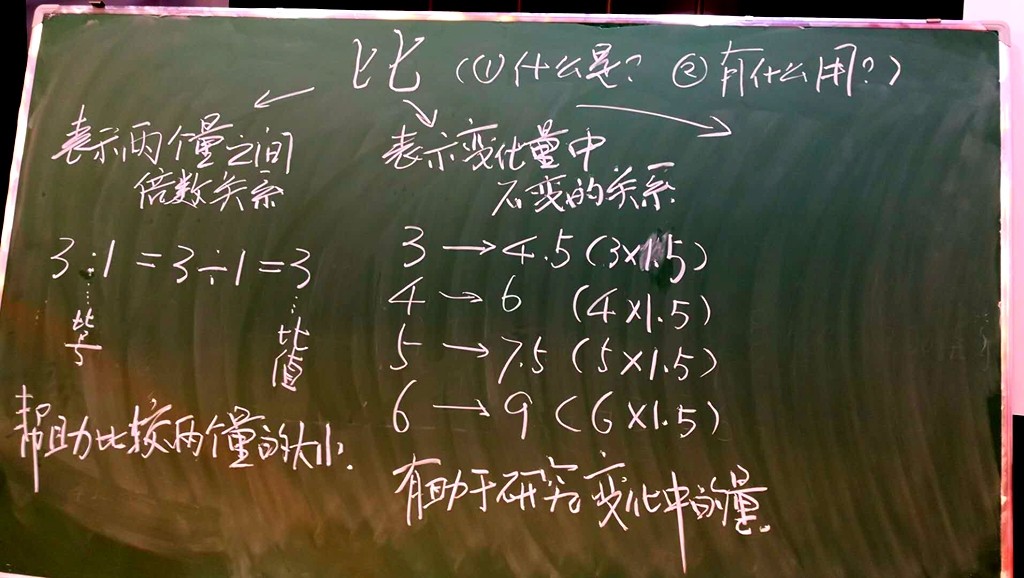 比 (①什么是? ②有什么用?)
表示两个量之间
倍数关系
3:1=3÷1=3
比号
比值
帮助比较两个量的大小.
表示变化量中
不变的关系.
3→4.5(3×1.5)
4→6 (4×1.5)
5→7.5 (5×1.5)
6→9 (6×1.5)
有助于研究变化中的量.